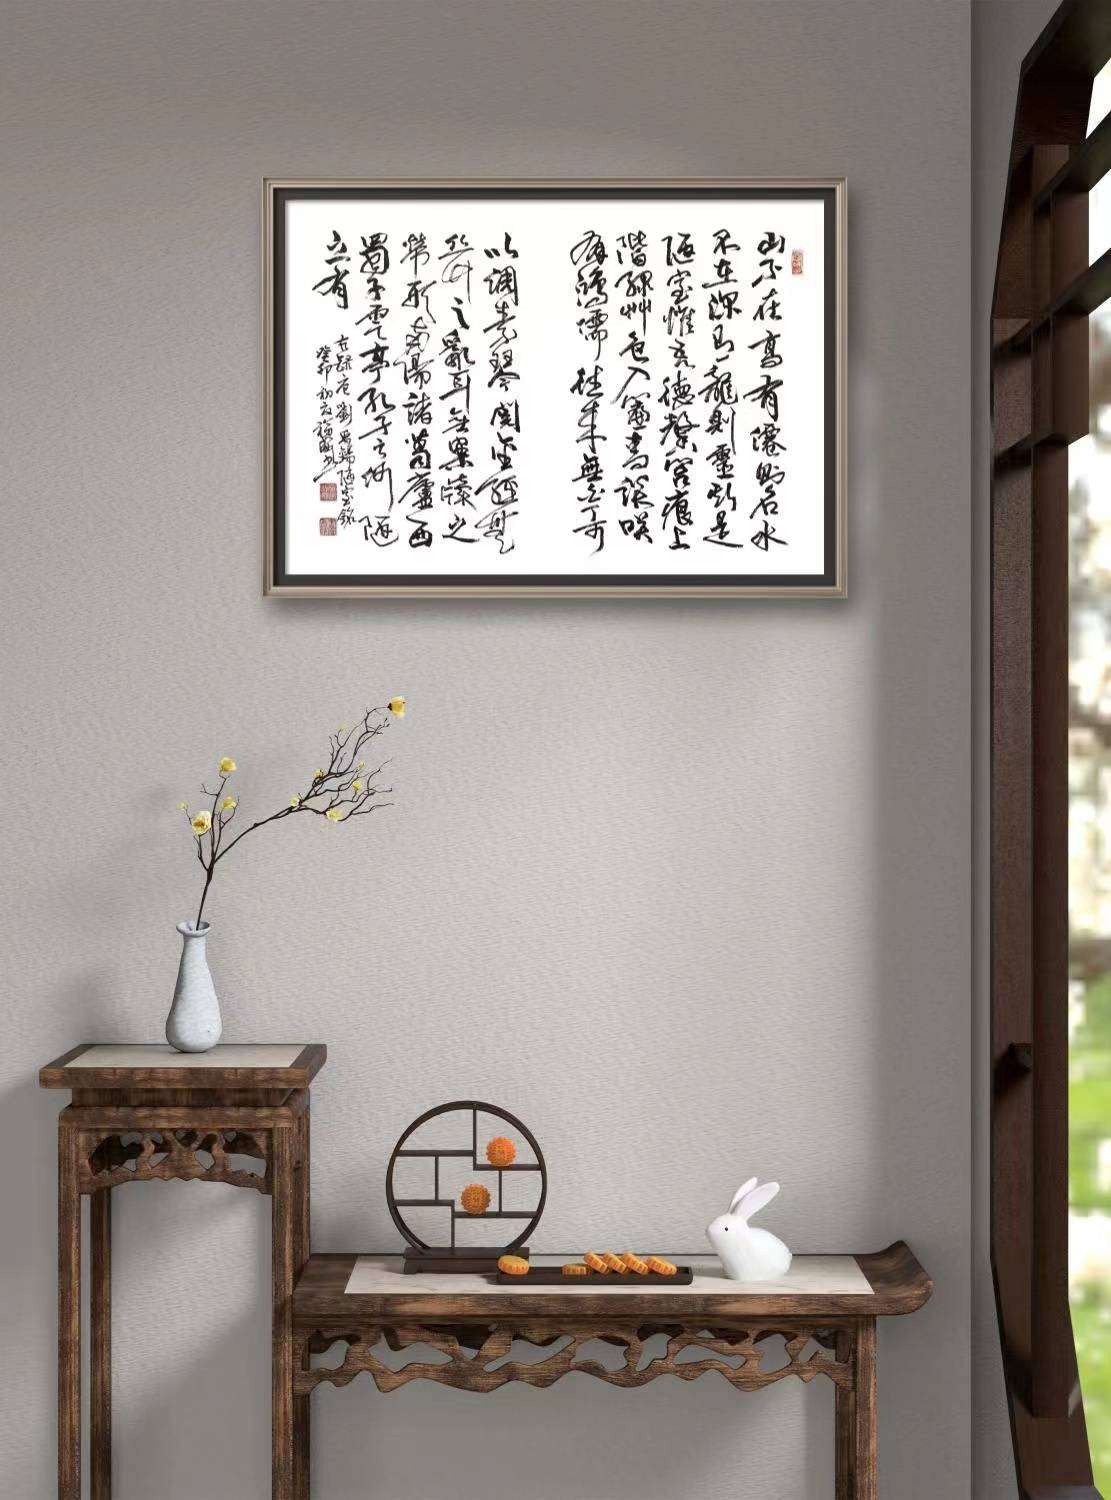 山不在高有僊則名水
不在深有龍則靈斯是
陋室惟吾德馨苔痕上
階綠艸色入簾青談咲
有鴻儒往来無白丁可
以調素琴閱金經無
丝竹之亂耳無案牘之
勞形南陽諸葛廬西
蜀子雲亭孔子云何陋
之有
右録唐劉禹錫陋室銘
癸卯初夏